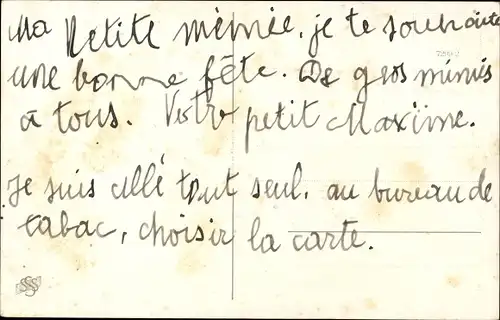 Ma Petite mémée, je te souhaite
une bonne fête. De gros mimis
à tous. Votre petit Maxime.
Je suis allé tout seul, au bureau de
tabac, choisir la carte.
SSS